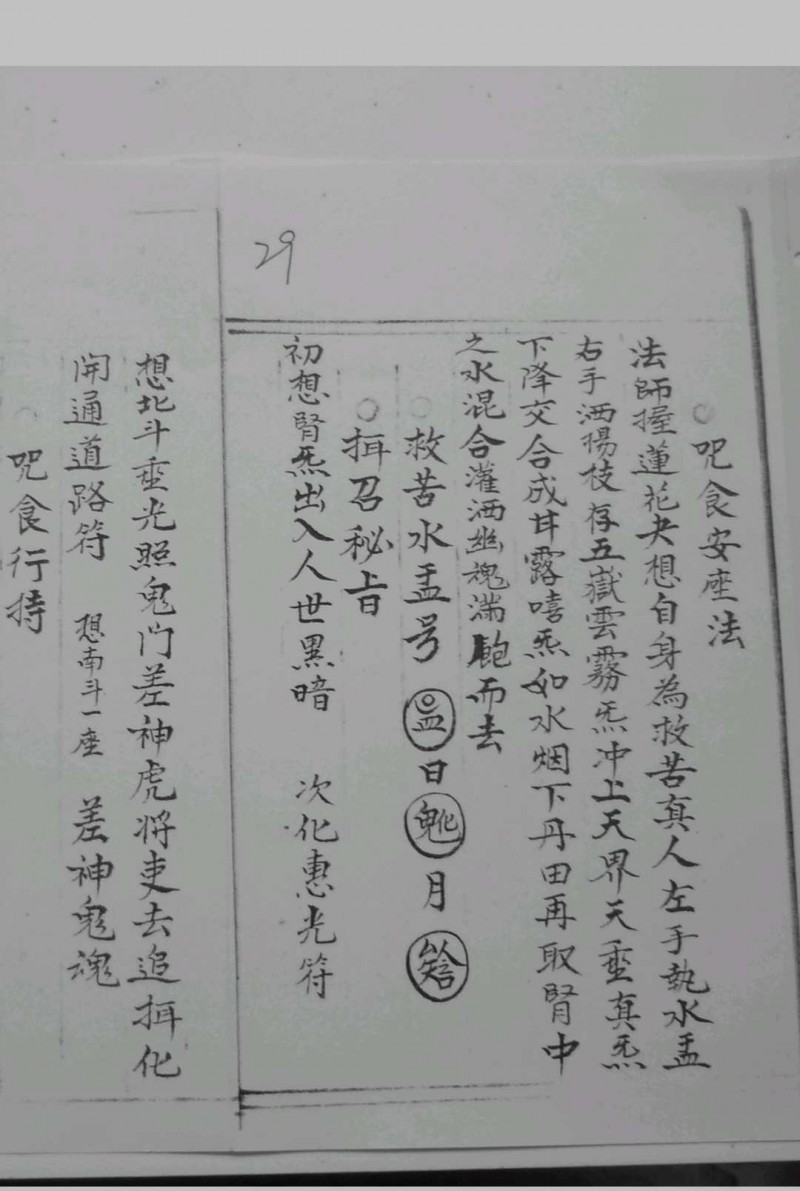 29
○咒食安座法
法師握蓮花夬想自身為救苦真人左手執水盂
右手洒楊枝存五嶽雲霧炁冲上天界天垂真炁
下降交合成甘露嘻炁如水烟下丹田再取腎中
之水混合灌洒幽魂滿飽而去
○救苦水盂号 日 月
○挕召秘旨
初想腎炁出入人世黑暗 次化惠光符
想北斗垂光照鬼门差神虎將吏去追挕化
開通道路符 想南斗一座 差神鬼魂
○咒食行持